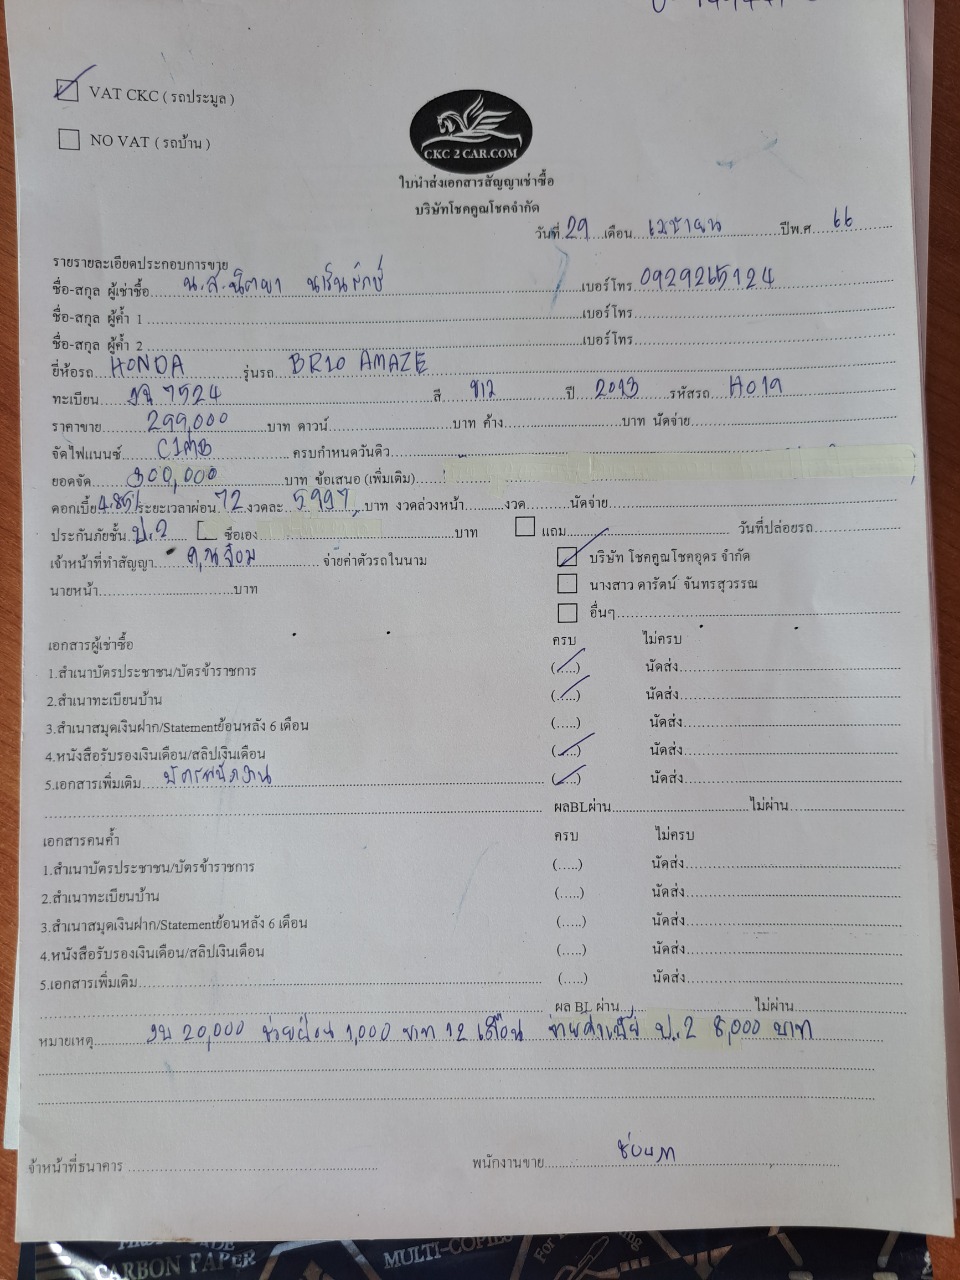 VAT CKC ( รถประมูล )
NO VAT ( รถบ้าน )
CKC 2 CAR.COM
ใบนำส่งเอกสารสัญญาเช่าซื้อ
บริษัทโชคคูณโชคจำกัด
วันที่ 29 เดือน เมษายน ปีพ.ศ. 66
รายรายละเอียดประกอบการขาย
ชื่อ-สกุล ผู้เช่าซื้อ น.ส. นิตยา เบอร์โทร 0929265124
ชื่อ-สกุล ผู้ค้ำ 1 เบอร์โทร
ชื่อ-สกุล ผู้ค้ำ 2 เบอร์โทร
ยี่ห้อรถ HONDA รุ่นรถ BRIO AMAZE
ทะเบียน 7524 สี ขาว ปี 2013 รหัสรถ H019
ราคาขาย 299,000 บาท ดาวน์ บาท ค้าง บาท นัดจ่าย
จัดไฟแนนซ์ CIMB ครบกำหนดวันดิว
ยอดจัด 300,000 บาท ข้อเสนอ (เพิ่มเติม)
ดอกเบี้ย 4.85% ระยะเวลาผ่อน 72 งวดละ 5,997 บาท งวดล่วงหน้า งวด นัดจ่าย
ประกันภัยชั้น ป.2 ซื้อเอง บาท แถม วันที่ปล่อยรถ
เจ้าหน้าที่ทำสัญญา จ่ายค่าตัวรถในนาม บริษัท โชคคูณโชคอุดร จำกัด
นายหน้า บาท นางสาว ดารัตน์ จันทรสุวรรณ
อื่นๆ
เอกสารผู้เช่าซื้อ ครบ ไม่ครบ
1.สำเนาบัตรประชาชน/บัตรข้าราชการ (.....) นัดส่ง
2.สำเนาทะเบียนบ้าน (.....) นัดส่ง
3.สำเนาสมุดเงินฝาก/Statementย้อนหลัง 6 เดือน (.....) นัดส่ง
4.หนังสือรับรองเงินเดือน/สลิปเงินเดือน (.....) นัดส่ง
5.เอกสารเพิ่มเติม บัตรพนักงาน (.....) นัดส่ง
ผลBLผ่าน ไม่ผ่าน
เอกสารคนค้ำ ครบ ไม่ครบ
1.สำเนาบัตรประชาชน/บัตรข้าราชการ (.....) นัดส่ง
2.สำเนาทะเบียนบ้าน (.....) นัดส่ง
3.สำเนาสมุดเงินฝาก/Statementย้อนหลัง 6 เดือน (.....) นัดส่ง
4.หนังสือรับรองเงินเดือน/สลิปเงินเดือน (.....) นัดส่ง
5.เอกสารเพิ่มเติม (.....) นัดส่ง
ผล BL ผ่าน ไม่ผ่าน
หมายเหตุ งบ 20,000 ช่วยผ่อน 1,000 บาท 12 เดือน ป.2 8,000 บาท
จ้าหน้าที่ธนาคาร พนักงานขาย
CARBON PAPER